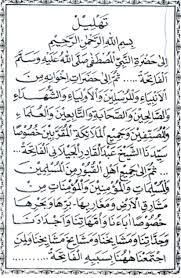 تَهْلِيْل
بِسْمِ اللهِ الرَّحْمٰنِ الرَّحِيْمِ
اِلَى حَضْرَةِ النَّبِيِّ الْمُصْطَفَى صَلَّى اللهُ عَلَيْهِ وَسَلَّمَ
الْفَاتِحَةُ ... ثُمَّ اِلَى حَضَرَاتِ اِخْوَانِهِ مِنَ
الْاَنْبِيَاءِ وَالْمُرْسَلِيْنَ وَالْاَوْلِيَاءِ وَالشُّهَدَاءِ
وَالصَّالِحِيْنَ وَالصَّحَابَةِ وَالتَّابِعِيْنَ وَالْعُلَمَاءِ
وَالْمُصَنِّفِيْنَ وَجَمِيْعِ الْمَلَائِكَةِ الْمُقَرَّبِيْنَ خُصُوْصًا
سَيِّدِنَا الشَّيْخِ عَبْدِ الْقَادِرِ الْجَيْلَانِي الْفَاتِحَةُ ...
... ثُمَّ اِلَى جَمِيْعِ اَهْلِ الْقُبُوْرِ مِنَ الْمُسْلِمِيْنَ
وَالْمُسْلِمَاتِ وَالْمُؤْمِنِيْنَ وَالْمُؤْمِنَاتِ مِنْ
مَشَارِقِ الْاَرْضِ وَمَغَارِبِهَا بَرِّهَا وَبَحْرِهَا
خُصُوْصًا اٰبَاءَنَا وَاُمَّهَاتِنَا وَاَجْدَادَنَا
وَجَدَّاتِنَا وَمَشَايِخَنَا وَمَشَايِخَ مَشَايِخِنَا وَلِمَنِ
اجْتَمَعْنَا هٰهُنَا بِسَبَبِهِ الْفَاتِحَةُ ...